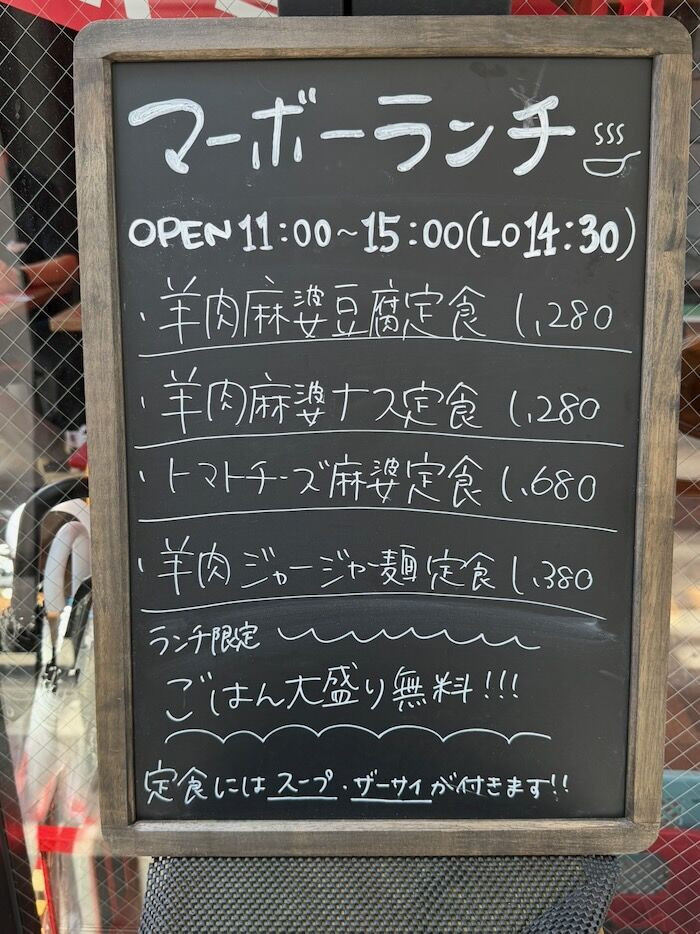 マーボーランチ
OPEN 11:00~15:00(LO 14:30)
・羊肉麻婆豆腐定食 1,280
・羊肉麻婆ナス定食 1,280
・トマトチーズ麻婆定食 1,680
・羊肉ジャージャー麺定食 1,380
ランチ限定
ごはん大盛り無料!!!
定食にはスープ・ザーサイが付きます!!